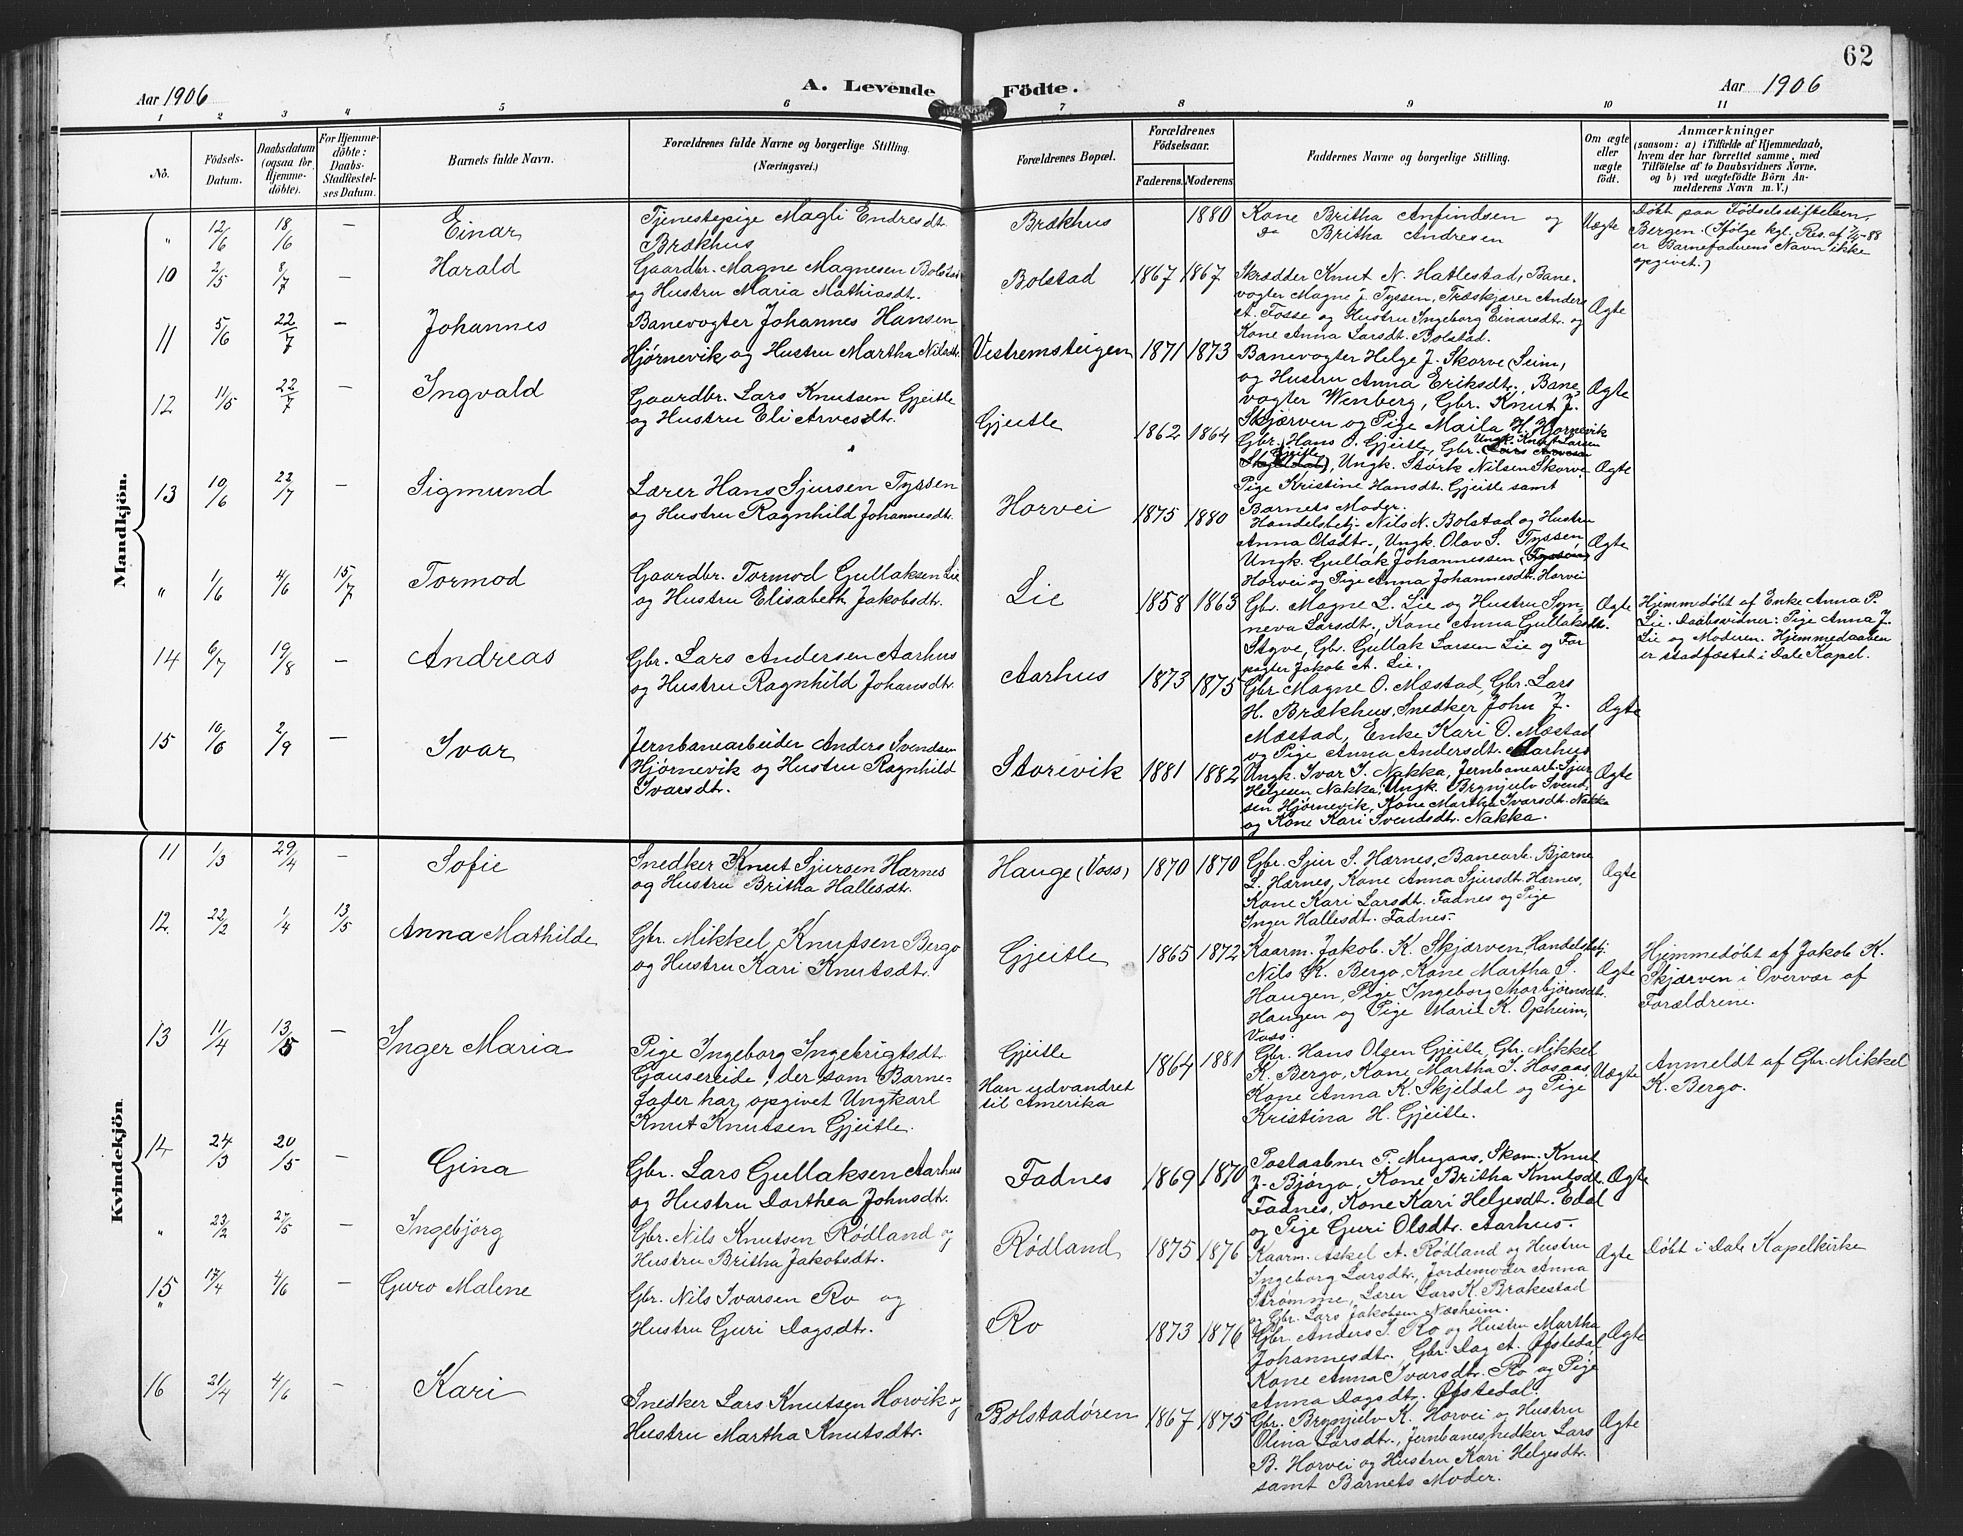 62
Aar 1906
A. Levende Födte.
Aar 1906
1 2 3 4 5 6 7 8 9 10 11
No.
Födsels-Datum.
Daabsdatum (ogsaa for Hjemme-döbte).
For Hjemme-döbte: Daabs-Stadfæstel-ses Datum.
Barnets fulde Navn.
Forældrenes fulde Navne og borgerlige Stilling. (Næringsvei.)
Forældrenes Bopæl.
Forældrenes Födselsaar.
Faderens. Moderens.
Faddernes Navne og borgerlige Stilling.
Om ægte eller uægte födt.
Anmærkninger
(saasom: a) i Tilfælde af Hjemmedaab,
hvem der har forrettet samme, med
Tilföielse af to Daabsvidners Navne.
og b) ved uægtefödte Börn An-
melderens Navn m. V.)
Mandkjön.
" 12/6 18/6 — Einar
Tjenestepige Magli Endresdt.
Brækhus
Brækhus 1880
Kone Britha Anfindsen og
Do Britha Andresen
Uægte
Døbt paa Fødselsstiftelsen,
Bergen. (Ifølge kgl. Res. af 7/4-88
er Barnefaderens Navn ikke
opgivet.)
10 2/5 8/7 — Harald
Gaardbr. Magne Magnesen Bolstad
og Hustru Maria Mathiasdt.
Bolstad 1867 1867
Skrædder Knut N. Hatlestad, Bane-
vogter Magne J. Tyssen, Træskjærer Anders
A. Fosse og Hustru Ingeborg Einarsdt. og
Kone Anna Larsdt. Bolstad.
Ægte
11 5/6 22/7 — Johannes
Banevogter Johannes Hansen
Hjørnevik og Hustru Martha Nilsdt.
Vestremsteigen 1871 1873
Banevogter Helge J. Skorve (Seim,
og Hustru Anna Eriksdt., Bane-
vogter Wenberg, Gbr. Knut J.
Skjærven og Pige Maila H. Hjørnevik
Ægte
12 11/5 22/7 — Ingvald
Gaardbr. Lars Knutsen Gjeitle
og Hustru Eli Arvesdt.
Gjeitle 1862 1864
Gbr. Hans O. Gjeitle, Ungk. Knut Larsen
Gjeitle, Ungk. Størk Nilsen Skorve,
Pige Kristine Hansdt. Gjeitle samt
Barnets Moder.
Ægte
13 10/6 22/7 — Sigmund
Lærer Hans Sjursen Tyssen
og Hustru Ragnhild Johannesdt.
Horvei 1875 1880
Handelsbetj. Nils N. Bolstad og Hustru
Anna Olsdt., Ungk. Olav S. Tyssen
Ungk. Gullak Johannessen
Horvei og Pige Anna Johannesdt. Horvei
Ægte
" 1/6 4/6 15/7 Tormod
Gaardbr. Tormod Gullaksen Lie
og Hustru Elisabeth Jakobsdt.
Lie 1858 1863
Gbr. Magne L. Lie og Hustru Syn-
neva Larsdt., Kone Anna Gullaksdt.
Styve, Gbr. Gullak Larsen Lie og For-
pagter Jakob A. Lie.
Ægte
Hjemmedøbt af Enke Anna P.
Lie. Daabsvidner: Pige Anna J.
Lie og Moderen. Hjemmedaaben
er stadfæstet i Dale Kapel.
14 6/7 19/8 — Andreas
Gbr. Lars Andersen Aarhus
og Hustru Ragnhild Johansdt.
Aarhus 1873 1875
Gbr Magne O. Mæstad, Gbr. Lars
H. Brækhus, Snedker John J.
Mæstad, Enke Kari O. Mæstad
og Pige Anna Andersdt. Aarhus
Ægte
15 10/6 2/9 — Ivar
Jernbanearbeider Anders Svendsen
Hjørnevik og Hustru Ragnhild
Ivarsdt.
Storevik 1881 1882
Ungk. Ivar I. Nakka, Jernbanearb. Sjur
Helgesen Nakka, Ungk. Brynjulv Svend-
sen Hjørnevik, Kone Martha Ivarsdt. Nakka
og Kone Kari Svendsdt. Nakka.
Ægte
Kvindekjön
11 1/3 29/4 — Sofie
Snedker Knut Sjursen Hærnes
og Hustru Britha Hallesdt.
Hauge (Voss) 1870 1870
Gbr. Sjur S. Hærnes, Banearb. Bjarne
L. Hærnes, Kone Anna Sjursdt. Hærnes,
Kone Kari Larsdt. Fadnes og Pige
Inger Hallesdt. Fadnes.
Ægte
12. 22/2 1/4 13/5 Anna Mathilde
Gbr. Mikkel Knutsen Bergo
og Hustru Kari Knutsdt.
Gjeitle 1865 1872
Kaarm. Jakob K. Skjærven, Handelsbetj.
Nils K. Bergo, Kone Martha S.
Haugen, Pige Ingeborg Thorbjørnsdt.
Haugen og Pige Marie K. Opheim,
Voss.
Ægte
Hjemmedøbt af Jakob K.
Skjærven i Overvær af
Forældrene.
13 11/4 13/5 — Inger Maria
Pige Ingeborg Ingebrigtsdt.
Gausereide; der som Barne-
fader har opgivet Ungkarl
Knut Knutsen Gjeitle.
Gjeitle
Han udvandret
til Amerika
1864 1881
Gbr. Hans Olsen Gjeitle, Gbr. Mikkel
K. Bergo, Kone Martha I. Hosaas,
Kone Anna K. Skjeldal og Pige
Kristina H. Gjeitle.
Uægte
Anmeldt af Gbr. Mikkel
K. Bergo.
14 24/3 20/5 — Gina
Gbr. Lars Gullaksen Aarhus
og Hustru Dorthea Johnsdt.
Fadnes 1869 1870
Postaabner P. Mugaas, Skom. Knut
J. Bjørgo, Kone Britha Knutsdt.
Fadnes, Kone Kari Helgesdt. Edal
og Pige Guri Olsdtr. Aarhus.
Ægte
" 23/2 27/5 — Ingebjørg
Gbr. Nils Knutsen Rødland og
Hustru Britha Jakobsdt.
Rødland 1875 1876
Kaarm. Askel A. Rødland og Hustru
Ingeborg Larsdt., Jordemoder Anna
Strømme, Lærer Lars K. Brakestad
og Gbr. Lars Jakobsen Næsheim.
Ægte
Døbt i Dale Kapelkirke
15 " 17/4 4/6 — Guro Malene
Gbr. Nils Ivarsen Ro og
Hustru Guri Dagsdt.
Ro 1873 1876
Gbr. Anders I. Ro og Hustru Martha
Johannesdt. Gbr. Dag A. Øfstedal
Kone Anna Ivarsdt. Ro og Pige
Anna Dagsdt. Øfstedal.
Ægte
16 21/4 4/6 — Kari
Snedker Lars Knutsen Horvik og
Hustru Martha Knutsdt.
Bolstadøren 1867 1875
Gbr. Brynjulv K. Horvei og Hustru
Olina Larsdt., Jernbanesnedker Lars
B. Horvei og Hustru Kari Helgesdt.
samt Barnets Moder.
Ægte